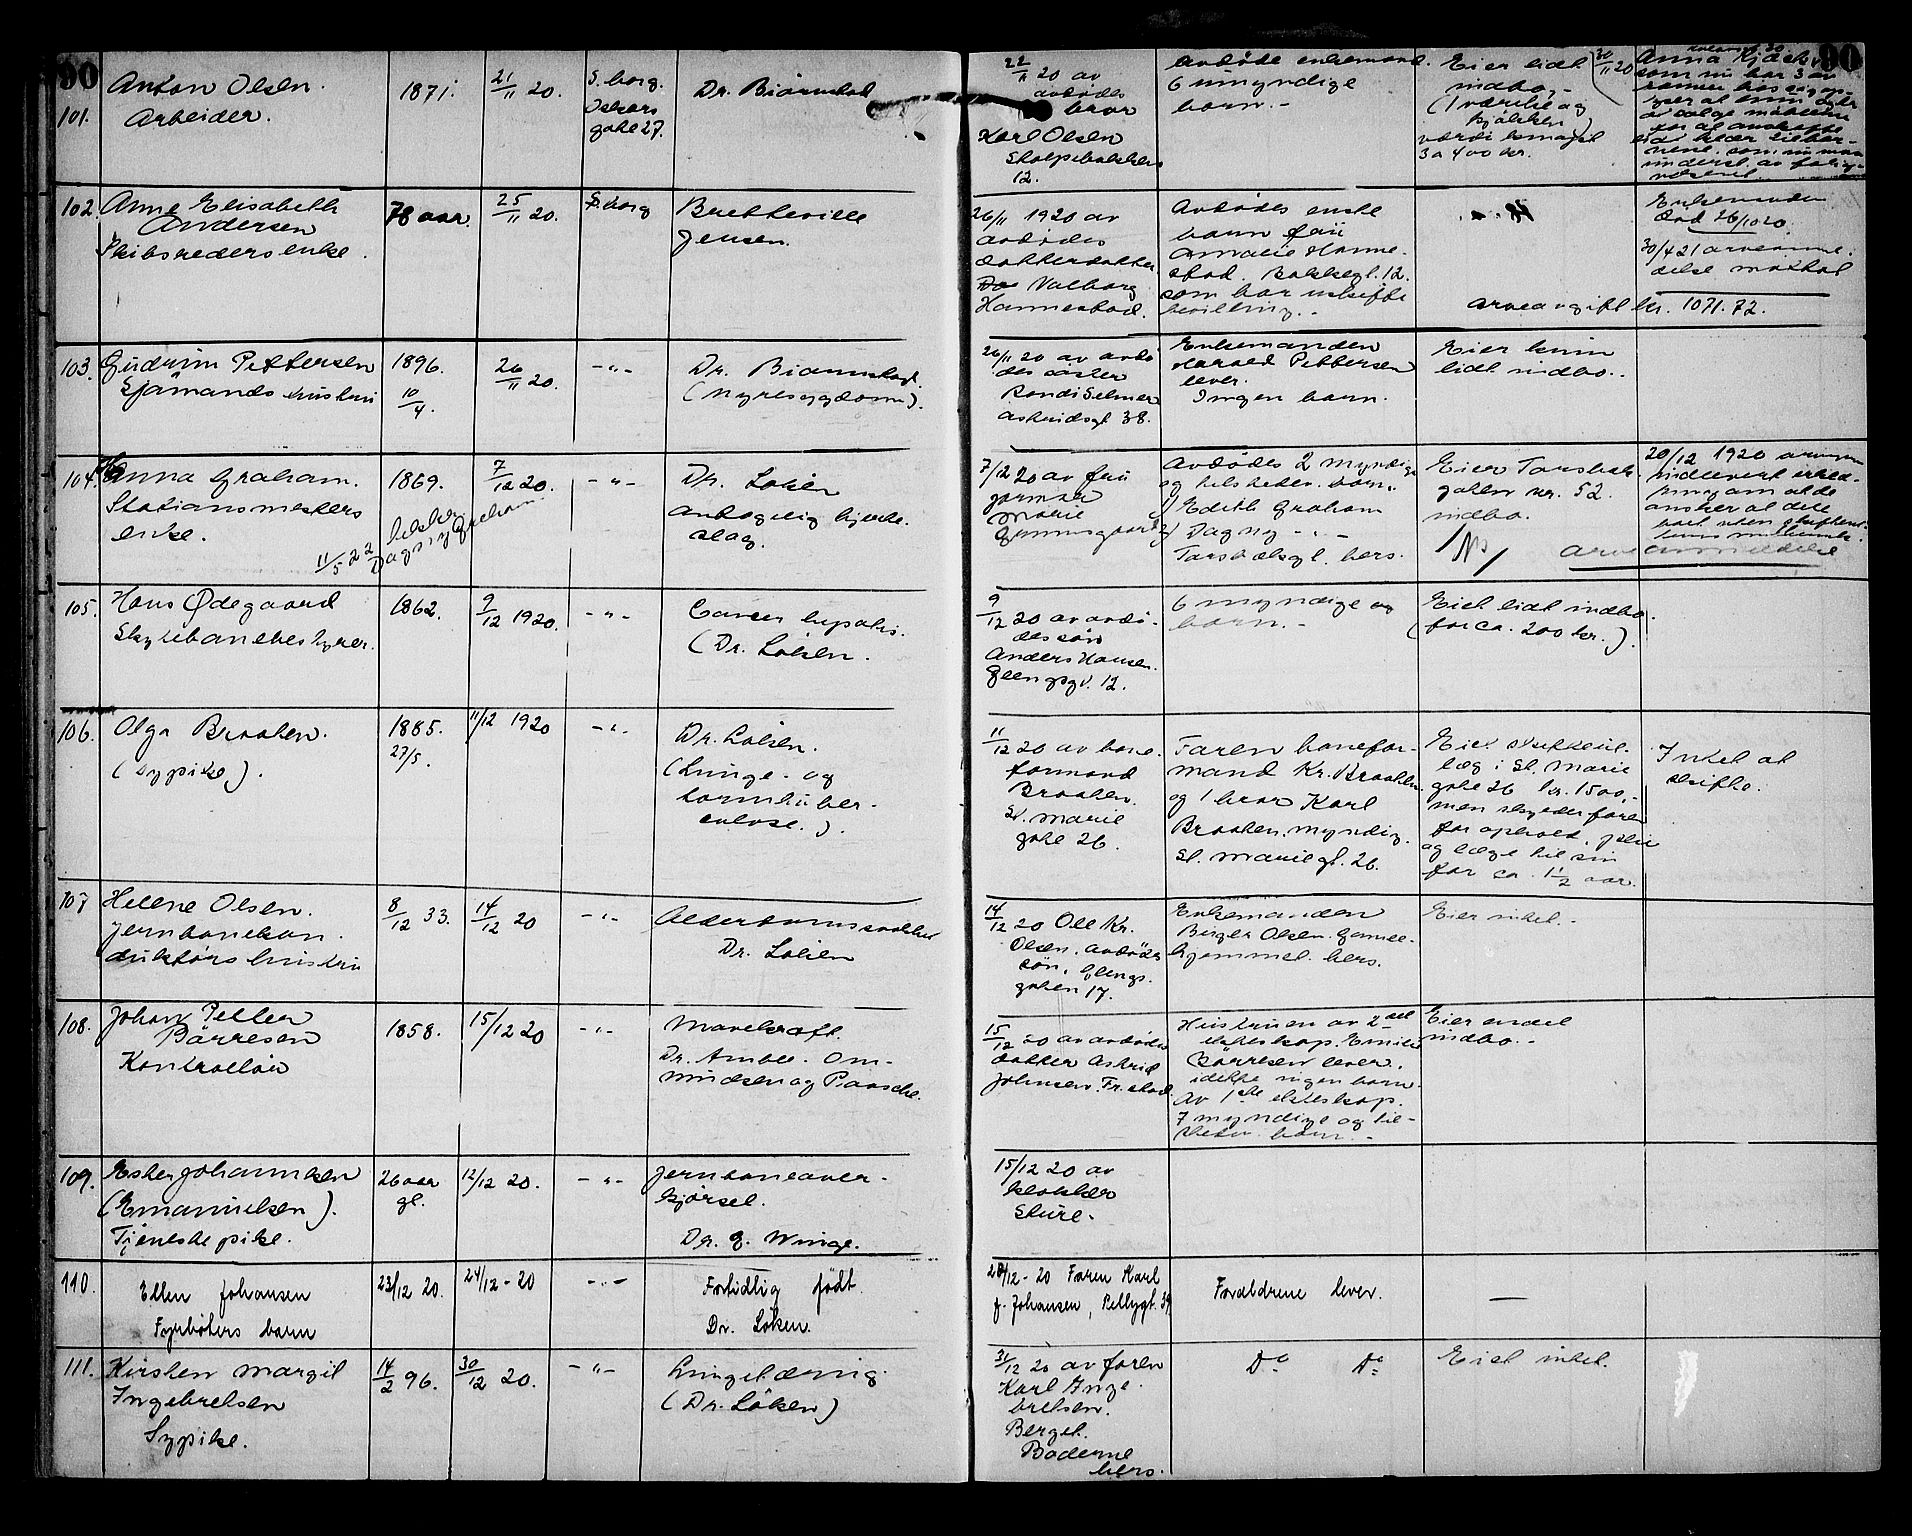 90
101.
Anton Olsen.
Arbeider.
1871.
21/11 20.
S.borg.
Oskars
gate 27.
Dr. Biørnstad
22/11 20 av
avdødes
bror
Karl Olsen
12.
6 umyndige
barn. -
Eier lidt
indbo,-
(1 værelse og
kjøkken)
3 a 400 kr.
30/11 20
90
Anna
som nu har 3 av
102.
Anne Elisabeth
Andersen
Skibsreders enke.
78 aar.
25/11 20.
S.borg
Bretteville
Jensen.
26/11 1920 av
avdødes
datterdatter
Valborg
Hannestad.
Avdødes eneste
barn fru
Amalie Hanne-
stad. Bakkegt. 12.
som har uskifte
bevilling. -
Enkemanden
død 26/10 20.
30/4 21 arveanme-
delse mottat
arveavgift kr. 1071.72.
103.
Gudrun Pettersen
Sjømands hustru
1896.
10/4.
26/11 20.
- " -
Dr. Biørnstad.
(Nyresygdom).
26/11 20 av avdø
des søster
Randi Selmer
Astridsgt 38.
Enkemanden
Harald Pettersen
lever.
Ingen barn.
Eier kun
lidt indbo. -
104.
Hanna Graham.
Stationsmesters
enke.
1869.
11/5 22
Dagny Graham
7/12 20.
- " -
Dr. Løken
antagelig hjerte-
slag.
7/12 20 av fru
Marie
Avdødes 2 myndige
og tilstedev. barn.
1) Edith Graham
2) Dagny - " -
Torsbækgt. hers.
Eier Torsbæk-
gaten nr. 52.
indbo.
20/12 1920 arvingene
indlevert erklæ-
ring om at de
ønsker at dele
boet uten skifteret-
tens mellemk.
arveanmeldelse
105.
Hans Ødegaard
Skytebanebestyrer.
1862.
9/12 1920.
- " -
Cancer hepatis.
(Dr. Løken.
9/12 20 av avdø-
des søn
Anders Hansen.
Glengsgt. 12.
6 myndige og
barn. -
Eiet lidt indbo
(for ca. 200 kr.)
106.
Olga Braaten.
(Sypike).
1885.
27/5.
11/12 1920
- " -
Dr. Løken.
(Lunge- og
tarmtuber-
culose.).
11/12 20 av bane
formand
Braaten.
St. Marie
gate 26.
Faren banefor-
mand Kr. Braaten
og 1 bror Karl
Braaten, myndig.
St. Marie gt. 26.
Eiet
læg i St. Marie
gate 26 kr. 1500,-
men skyeder faren
for ophold, pleie
og læge til sin
for ca. 1 1/2 aar.
Intet at
skifte.
107
Helene Olsen.
Jernbanekon-
duktørs hustru
8/12 33.
14/12 20
- " -
Alderdomssvakhet
Dr. Løken
14/12 20 Ole Kr.
Olsen, avdødes
søn, Glengs-
gaten 17.
Enkemanden
Birger Olsen. Gamle-
hjemmet. hers.
Eier intet. -
108.
Johan Petter
Børresen
Kontrollør
1858.
15/12 20
- " -
Mavekræft.
Dr. Amble. Om-
mundsen og Paasche.
15/12 20 av avdødes
datter Astrid
Johnsen. Fr.stad.
Hustruen av 2det
ekteskap. Emilie
Børresen lever,
idette ingen barn.
Av 1ste ekteskap.
7 myndige og til-
stedev. barn. -
Eier endel
indbo. -
109.
Ester Johanneson
(Emanuelsen).
Tjenestepike.
26 aar
gl.
12/12 20.
- " -
Jernbaneover-
kjørsel.
Dr. J. Winge.
15/12 20 av
klokker
Skure.
110.
Ellen Johansen
Fyrbøters barn
23/12 20.
24/12 - 20
- " -
Fortidlig født.
Dr. Løken.
28/12 - 20 Faren Karl
J. Johansen, Pellygt. 39
Forældrene lever.
—
111.
Kirsten Margit
Ingebretsen
Sypike.
14/2 96.
30/12 20.
- " -
Lungelænig
(Dr. Løken)
31/12 20 av faren
Karl Inge-
bretsen.
Berget.
Baderne
hers.
Do Do
Eiet intet.